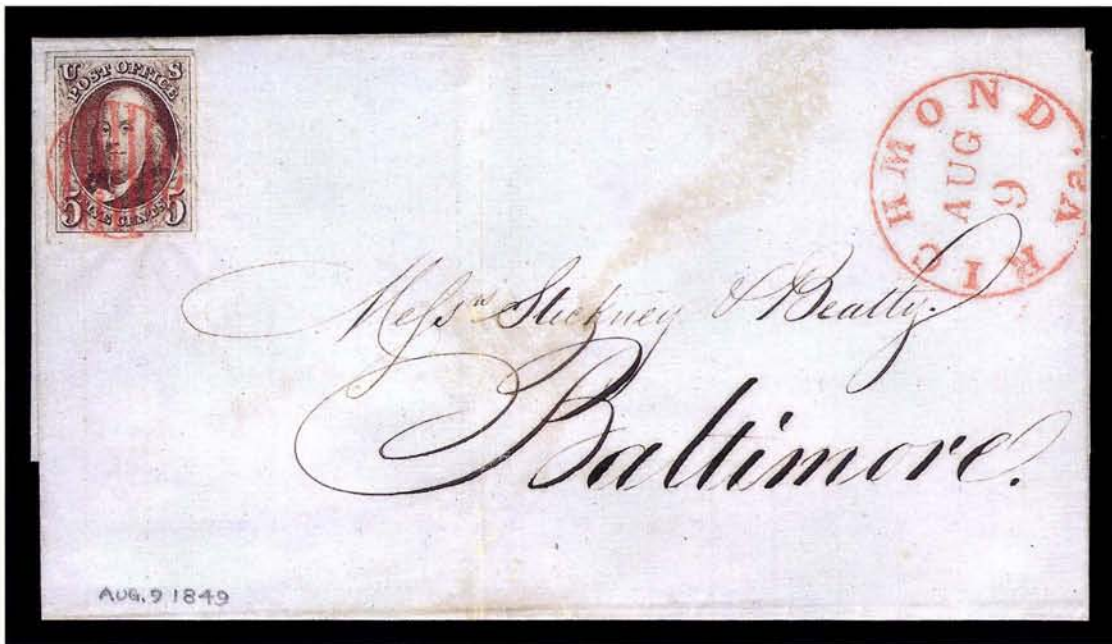 U S
POST OFFICE
5 FIVE CENTS 5
RICHMOND Va.
AUG
9
Messrs Stickney & Beatty.
Baltimore.
AUG. 9 1849